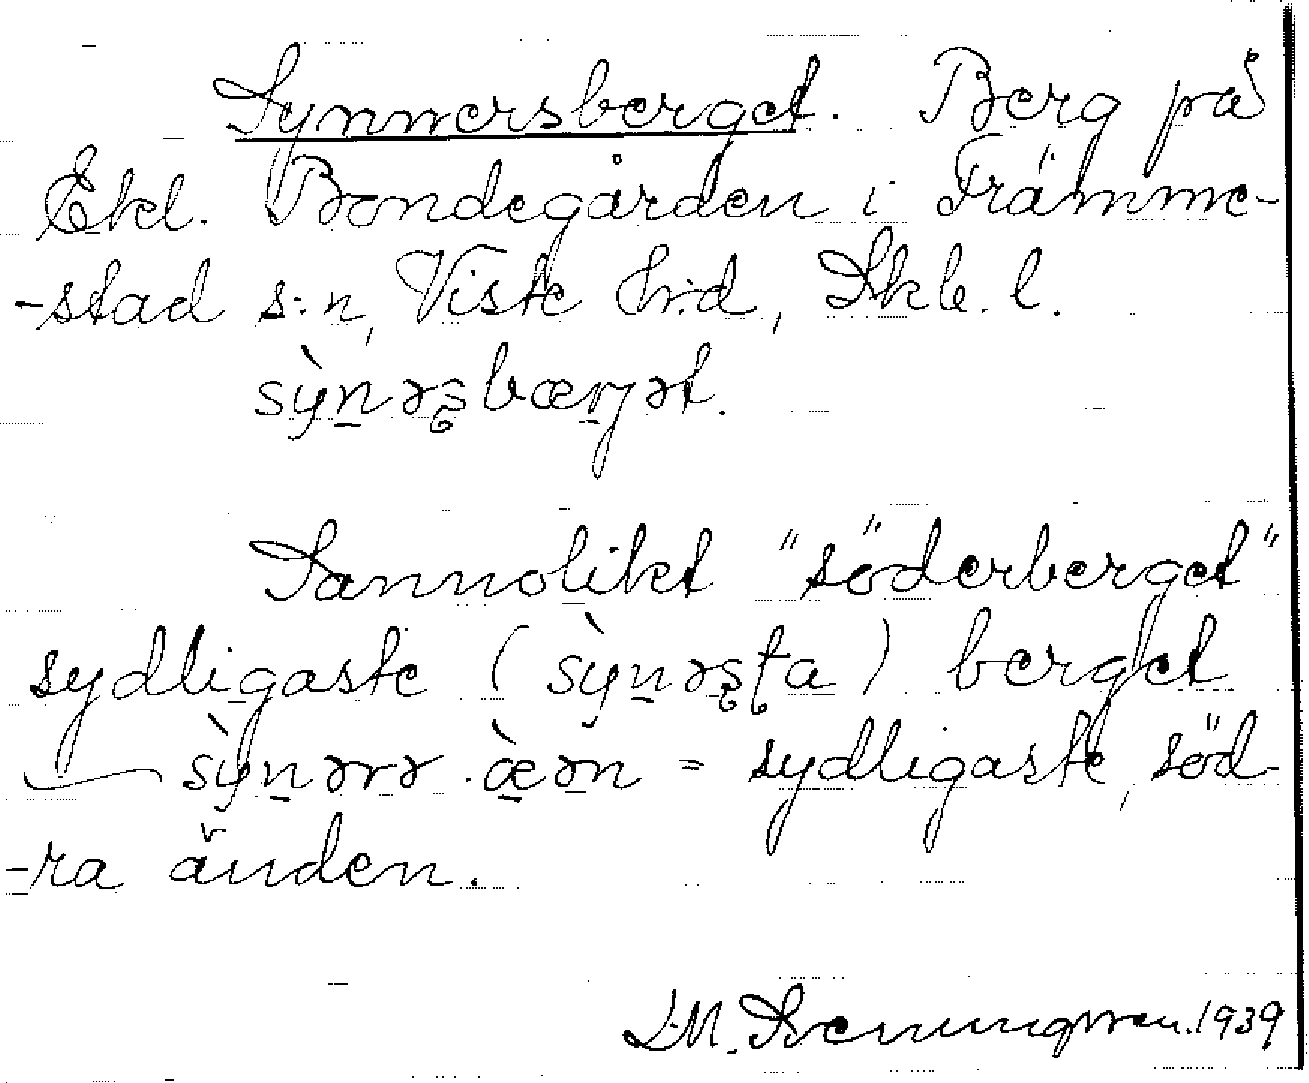 Synnersberget. Berg på
Ekl. Bondegården i Främme-
-stad s:n, Viste hrd, Skb. l.
sỳn̠ərʂbærjət.
Sannolikt "söderberget"
sydligaste (sỳn̠əʂʈa) berget
sỳn̠ərə æ̀ən = sydligaste, söd-
-ra änden.
1939